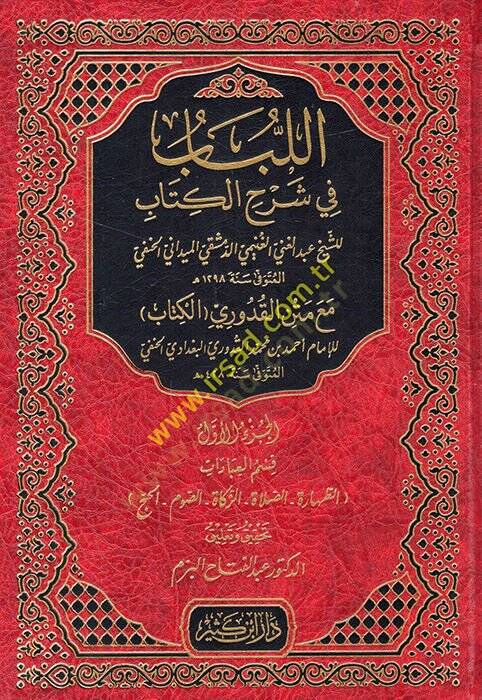 اللُّبَابُ
فِي شَرْحِ الكِتَابِ
للشيخ عبد الغني الغنيمي الدمشقي الميداني الحنفي
المتوفى سنة ١٢٩٨ هـ
مَعَ متن القدوري (الكتاب)
للإمام أحمد بن محمد القدوري البغدادي الحنفي
المتوفى سنة ٤٢٨ هـ
الجزء الأول
قسم العبادات
(الطهارة - الصلاة - الزكاة - الصوم - الحج)
تحقيق وتعليق
الدكتور عبد الفتاح البزم
دار ابن كثير
www.irsad.com.tr